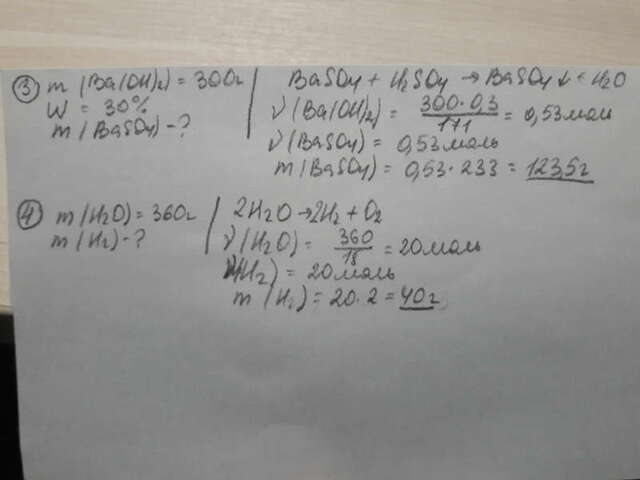 ③ m (Ba(OH)₂) = 300г | BaSO4 + H2SO4 → BaSO4↓ + H2O
W = 30% | ν (Ba(OH)₂) = 300·0,3/171 = 0,53моль
m (BaSO4) - ? | ν (BaSO4) = 0,53моль
m (BaSO4) = 0,53·233 = 123,5г
④ m (H2O) = 360г | 2H2O → 2H2 + O2
m (H2) - ? | ν (H2O) = 360/18 = 20моль
ν(H2) = 20моль
m (H2) = 20·2 = 40г